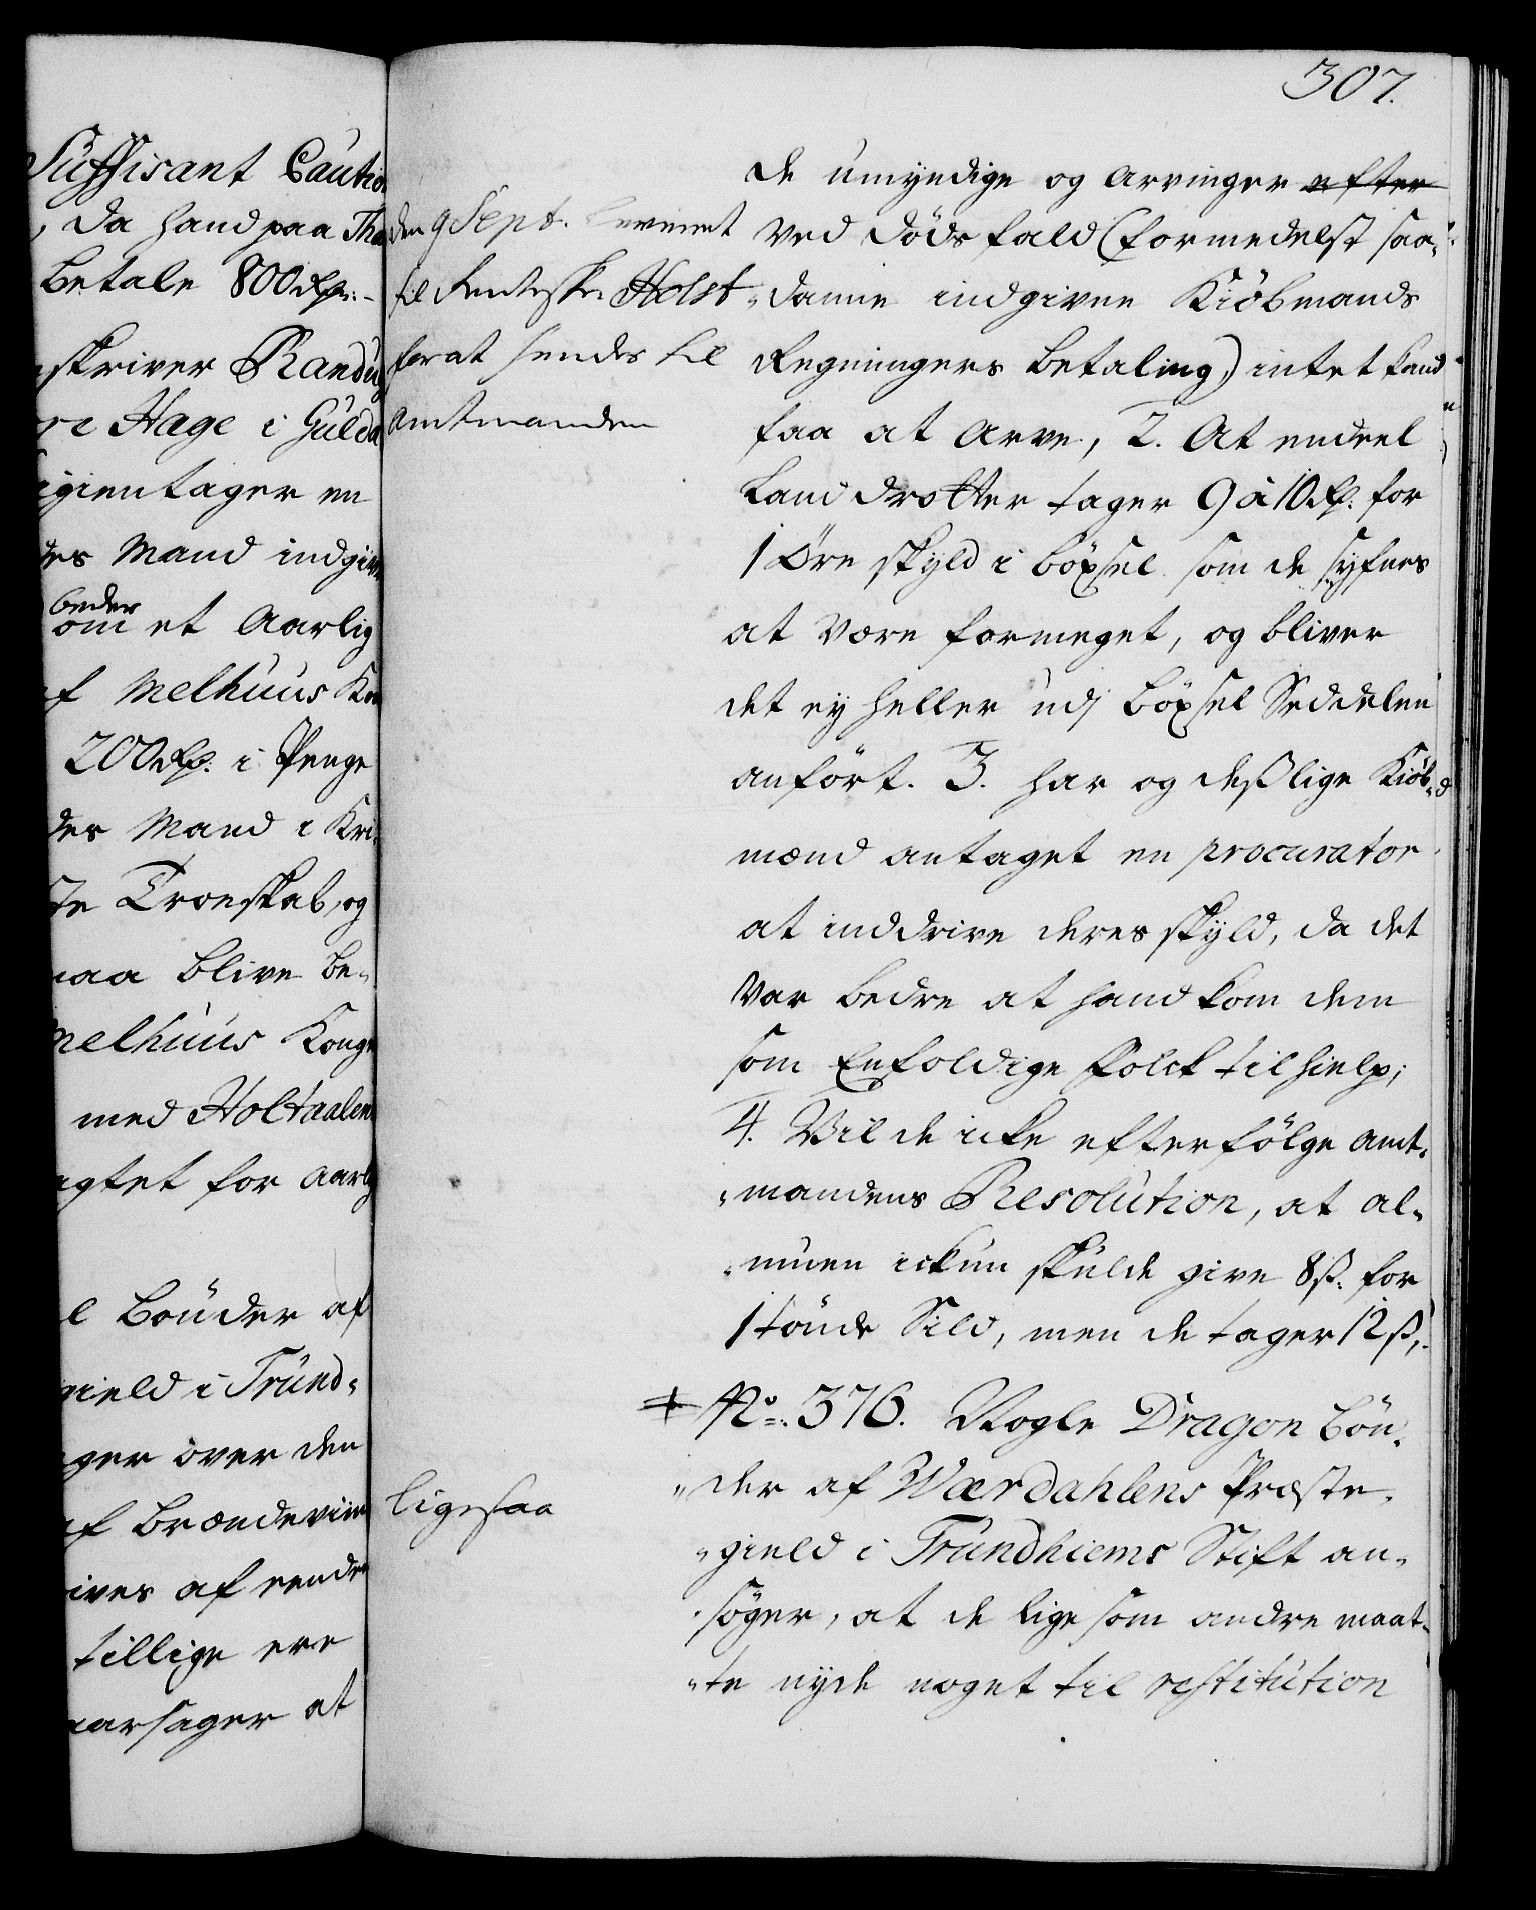 Suffisant Caution
, da hand paa Th
betale 800 rdr:
skriver Randul
Hage i Gulda
igientager en
des Mand indgiv
beder
om et aarlig
af Melhuus K
200 rd. i Penge
des Mand i Kri-
Troeskab, og
maa blive be-
Melhuus Konge
med Holtaalen
agtet for aarlig
Bønder af
gield i Trund-
ager over den
af Brændeviin
ives af eendeel
tillige ere
aarsager at
307.
den 9 Sept. leveret
til Renteskr. Holst
for at sendes til
Amtmanden
de umyndige og arvinger efter
ved dødsfald (formedelst saa-
danne indgivne Kiöbmænds
Regningers betaling) intet kand
faa at arve, 2. At endeel
Landdrotter tager 9 à 10 rd. for
1 Öre skyld i böxsel som de syfnes
at være formeget, og bliver
det ey heller udj böxsel Seddelen
anfört. 3. har og deßlige Kiöb-
mænd antaget en procurator
at inddrive deres skyld, da det
var bedre at hand kom dem
som Enfoldige Folck til hielp;
4. Vil de icke efterfölge Amt-
mandens Resolution, at al-
muen ickun skulde give 8 ß. for
1 tönde Sild, men de tager 12 ß,
No. 376. Nogle Dragon Bön-
der af Wærdahlens Præste-
gield i Trundhiems Stift an-
söger, at de lige som andre maat-
te nyde noget til restitution
ligesaa